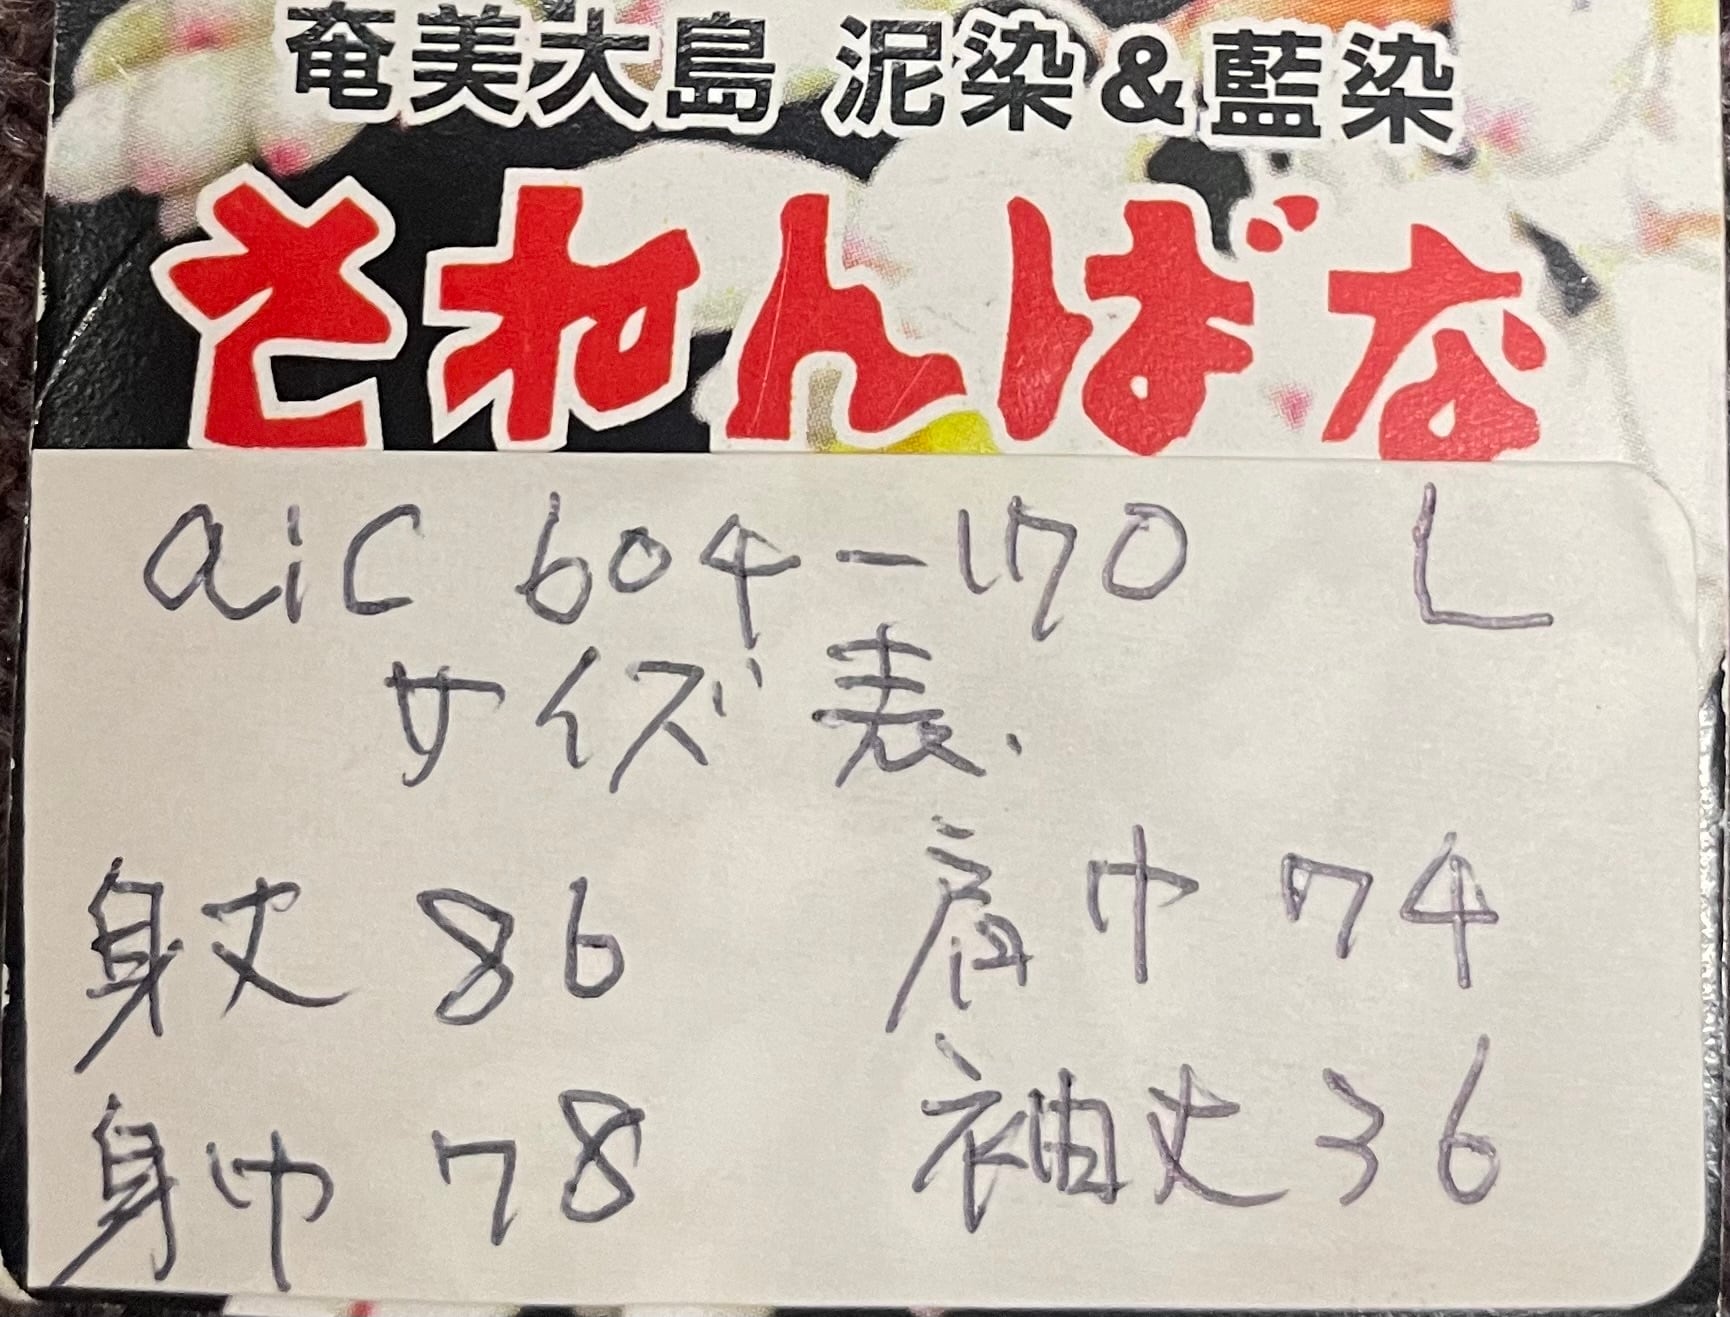 奄美大島 泥染&藍染
さねんばな
aic 604-170 L
サイズ表.
身丈 86 肩巾 74
身巾 78 袖丈 36